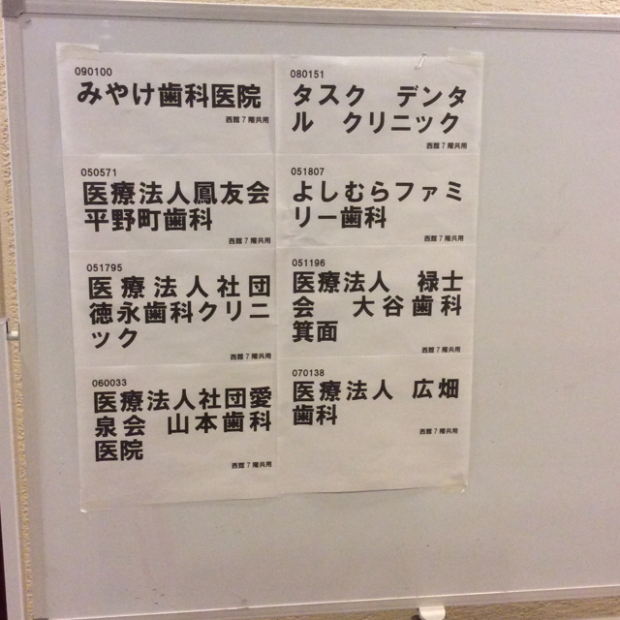 090100
みやけ歯科医院
西館7階共用
080151
タスク　デンタ
ル　クリニック
西館7階共用
050571
医療法人鳳友会
平野町歯科
西館7階共用
051807
よしむらファミ
リー歯科
西館7階共用
051795
医療法人社団
徳永歯科クリニ
ック
西館7階共用
051196
医療法人　禄士
会　大谷歯科
箕面
西館7階共用
060033
医療法人社団愛
泉会　山本歯科
医院
西館7階共用
070138
医療法人　広畑
歯科
西館7階共用